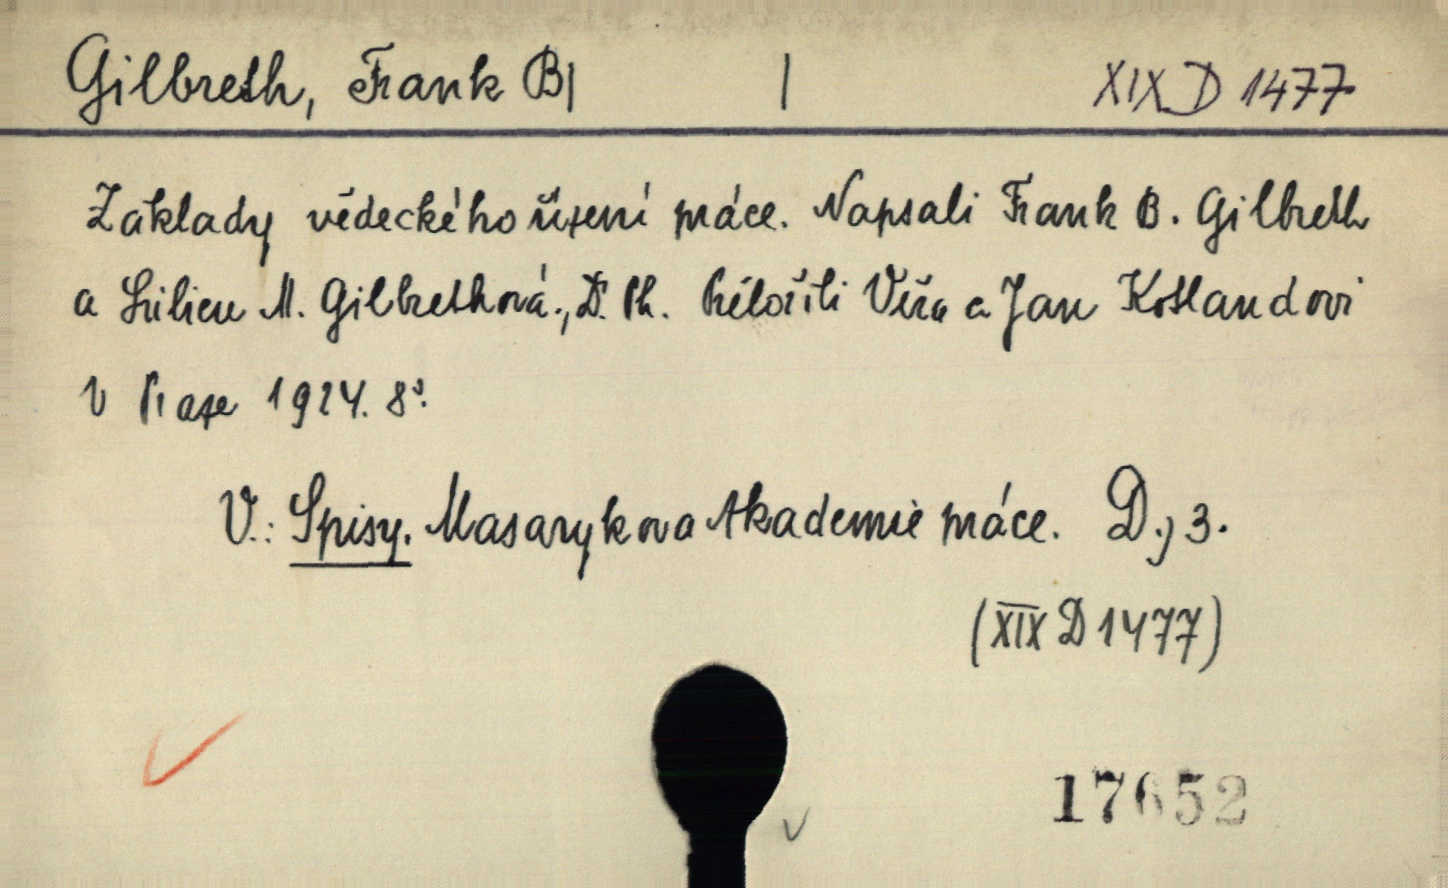 Gilbreth, Frank B| | XIX D 1477
Základy vědeckého řízení práce. Napsali Frank B. Gilbreth
a Lilien M. Gilbrethová., D. Ph. Přeložili Věra a Jan Kotlandovi
V Praze 1924. 8°.
V.: Spisy. Masarykova Akademie práce. D.; 3.
(XIX D 1477)
17652